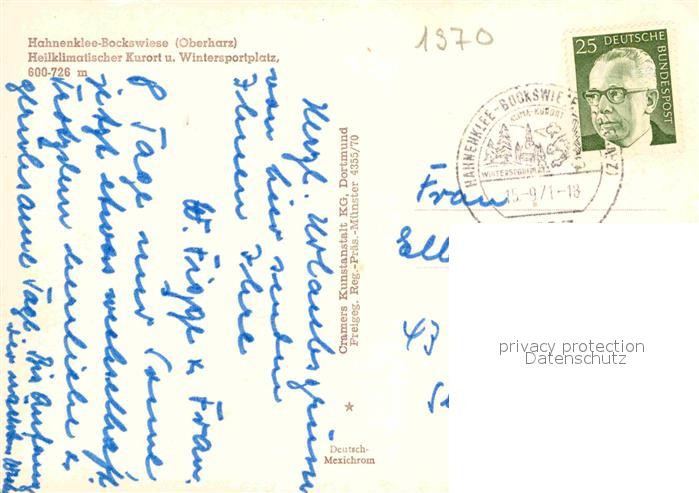 Hahnenklee-Bockswiese (Oberharz)
Heilklimatischer Kurort u. Wintersportplatz,
600-726 m
1970
25 DEUTSCHE BUNDESPOST
HAHNENKLEE-BOCKSWIE
KLIMA-KURORT
WINTERSPORTPLATZ
15.-9.71-18
Herzl. Urlaubsgrüsse
von hier senden
Ihnen Ihre
W. u. Frau.
8 Tage nur Sonne
jetzt etwas wechselhaft
trotzdem herrliche u.
geruhsame Tage. Bis Anfang
der nächsten
Cramers Kunstanstalt KG, Dortmund
Freigeg. Reg.-Präs.-Münster 4355/70
Deutsch-
Mexichrom
Frau
Ell
43
privacy protection
Datenschutz